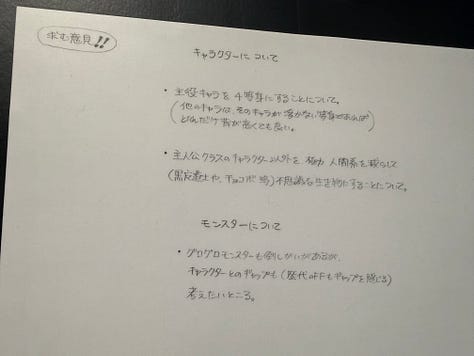 求む意見!!
キャラクターについて
・主役キャラを4等身にすることについて。
(他のキャラは、そのキャラが浮かない等身であれば
どんだけ背が高くても良い。)
・主人公クラスのキャラクター以外を、極力 人間系を減らして
(黒魔道士や、チョコボ 等)不思議な生き物にすることについて。
モンスターについて
・グログロモンスターも倒しがいがあるが、
キャラクターとのギャップも(歴代のFFもギャップを感じる)
考えたいところ。